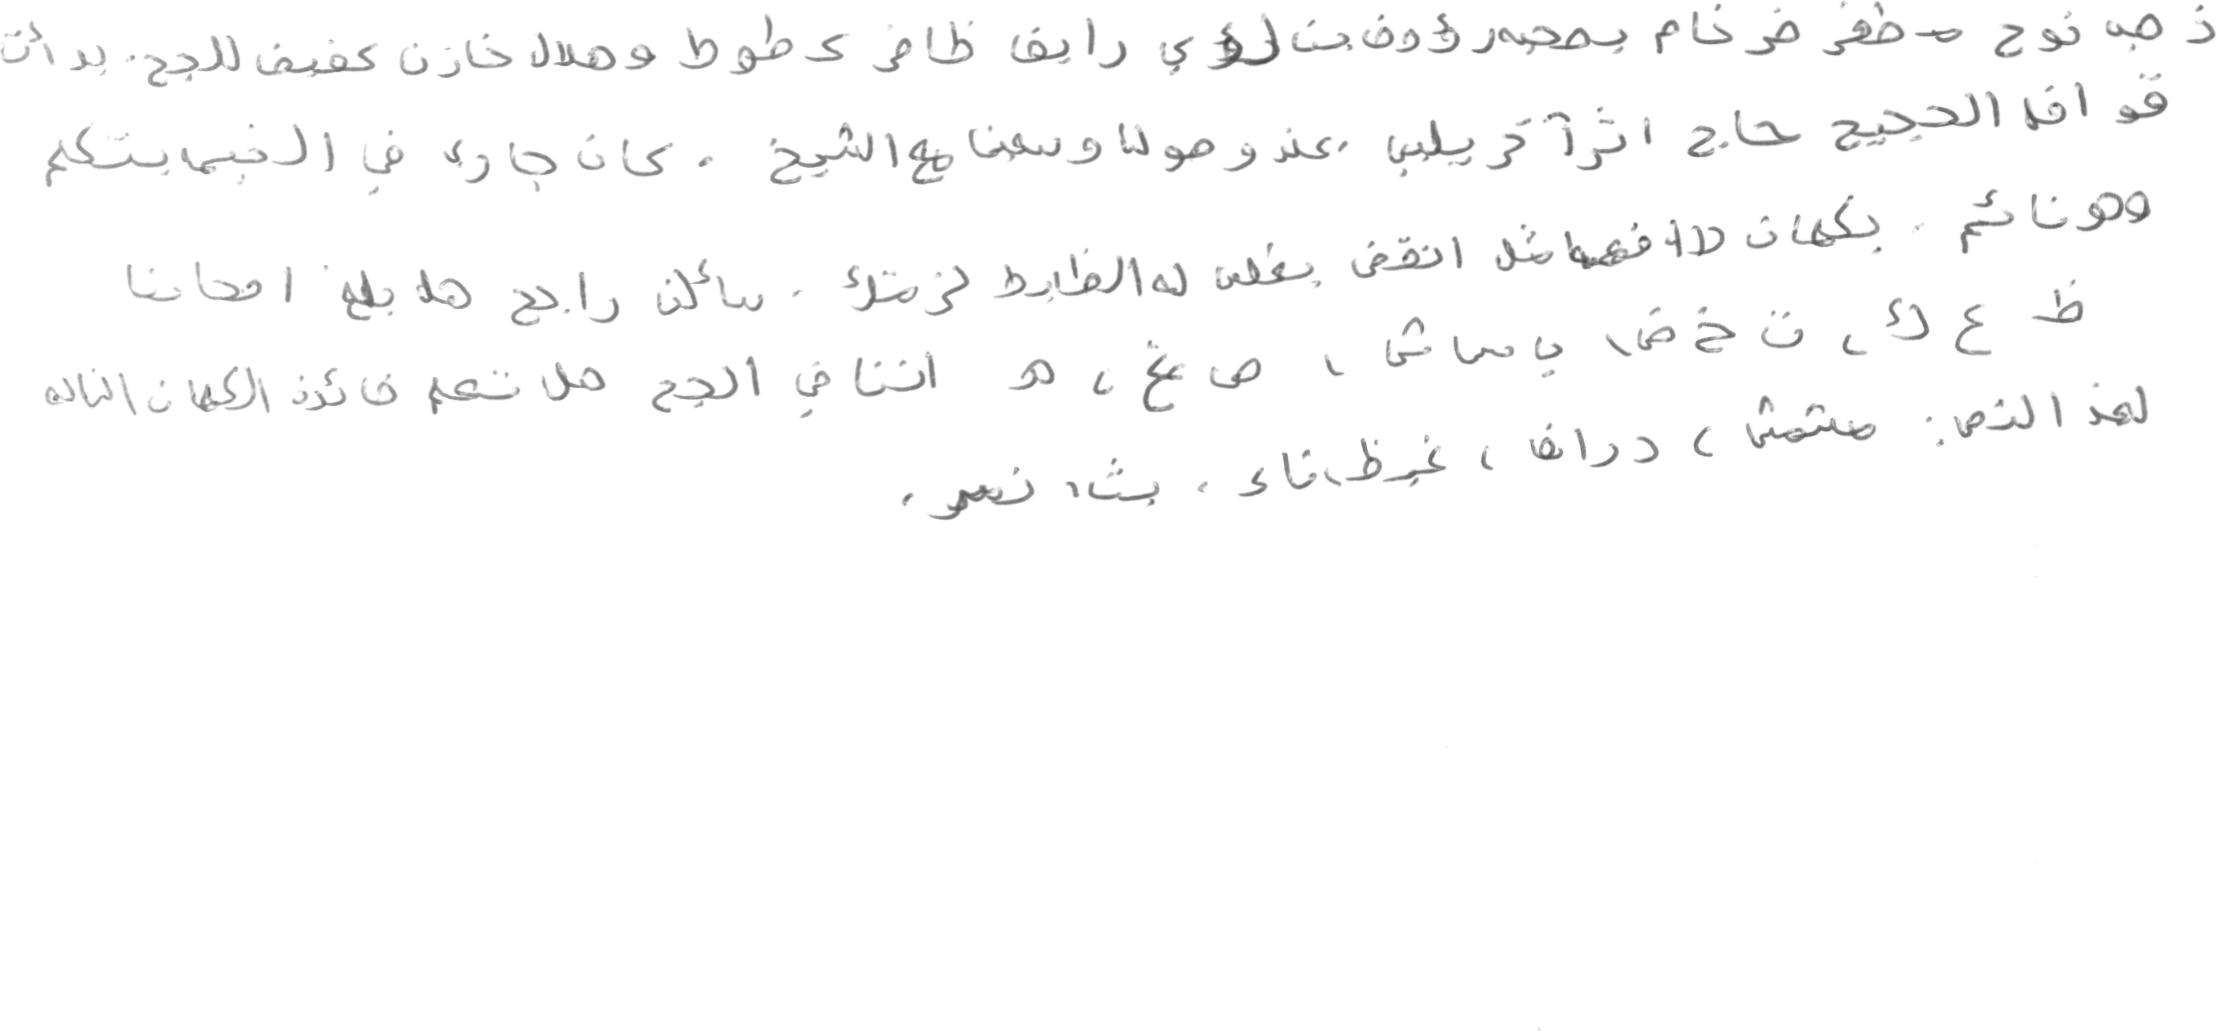 ذهب نوح مظفر ضرغام بصحبه رؤوف بن لؤي رايق ظافر عطوط وهلال خازن عفيف للحج. بدأت
قوافل الحجيج حاج اثرآخر يلبي، عند وصولنا وسعنا مع الشيخ. كان جاري في الخيمه يتكلم
وهو نائم. بكلمات لا أفهمها مثل انقض يغلس له الظابط لزمتك. سألن راجح هل بلغ امحاننا
ظ ع ك، ت خ ض، ي س ا ش، ص غ، هـ اننا في الحج هل تعلم فائدة الكلمات التاله
لهذا النص: مشمش، دراف، غيظ، ناء، بث، نعم،